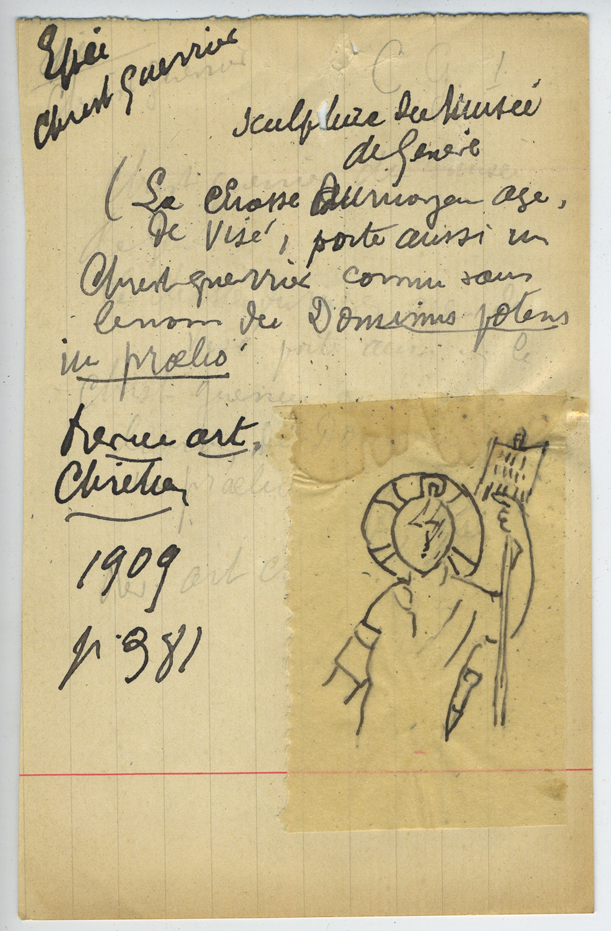 Epée
Christ guerrier
sculpture du Musée
de Genève
( La chasse du moyen age,
de Visé, porte aussi un
Christ guerrier connu sous
le nom de Dominus potens
in prœlio
Revue art.
Chrétien
1909
p. 381